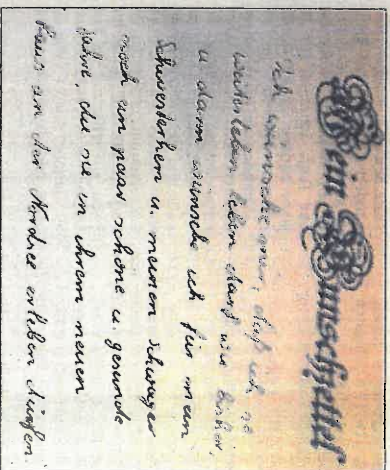 Mein Wunschzettel
Ich wünsche mir, daß ich so
weiterleben leben darf wie bisher.
u dann wünsche ich für mein
Schwesterherz u. meinen Schwager
noch ein paar schöne u. gesunde
Jahre, die sie in ihrem neuen
Haus an der Nordsee erleben dürfen.